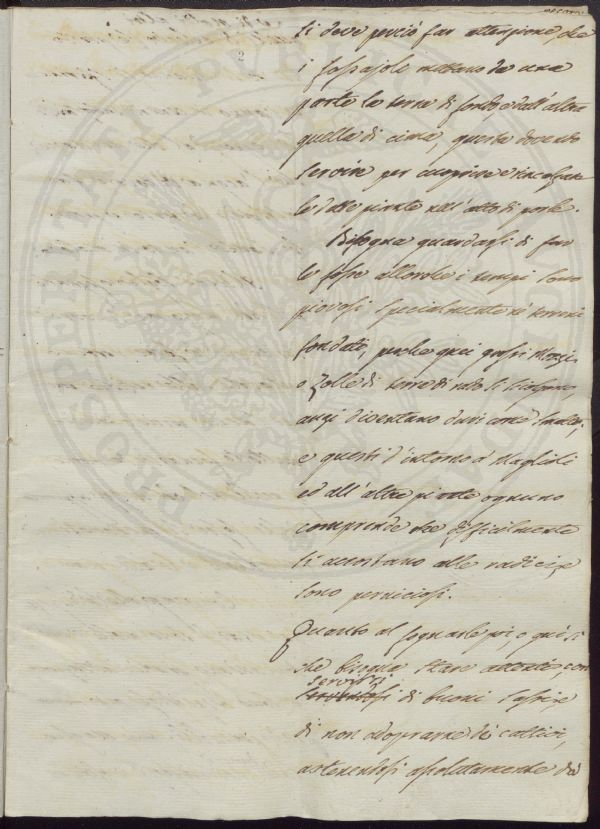 2
si deve perciò far attenzione, che
i fossajoli mettano da una
parte la terra di fondo, e dall'altra
quella di cima, questa dovendo
servire per coprire e rincalzare
le dette piante nell'atto di porle.
Bisogna guardarsi di far
le fosse allorchè i tempi sono
piovosi specialmente ne' terreni
fondati, perchè quei grossi
o Zolle di terre di rado si
anzi diventano duri come smalto,
e questi d'intorno a' Maglioli
ed all'altre piante ognuno
comprende che difficilmente
si accostano alle radici, e
sono perniciosi.
Quanto al fognarle poi, o quì sì
che bisogna stare attenti, con
servirsi
di buoni sassi, e
di non adoprarne de' cattivi,
astenendosi assolutamente dà
PROSPERITATI PUBLICAE